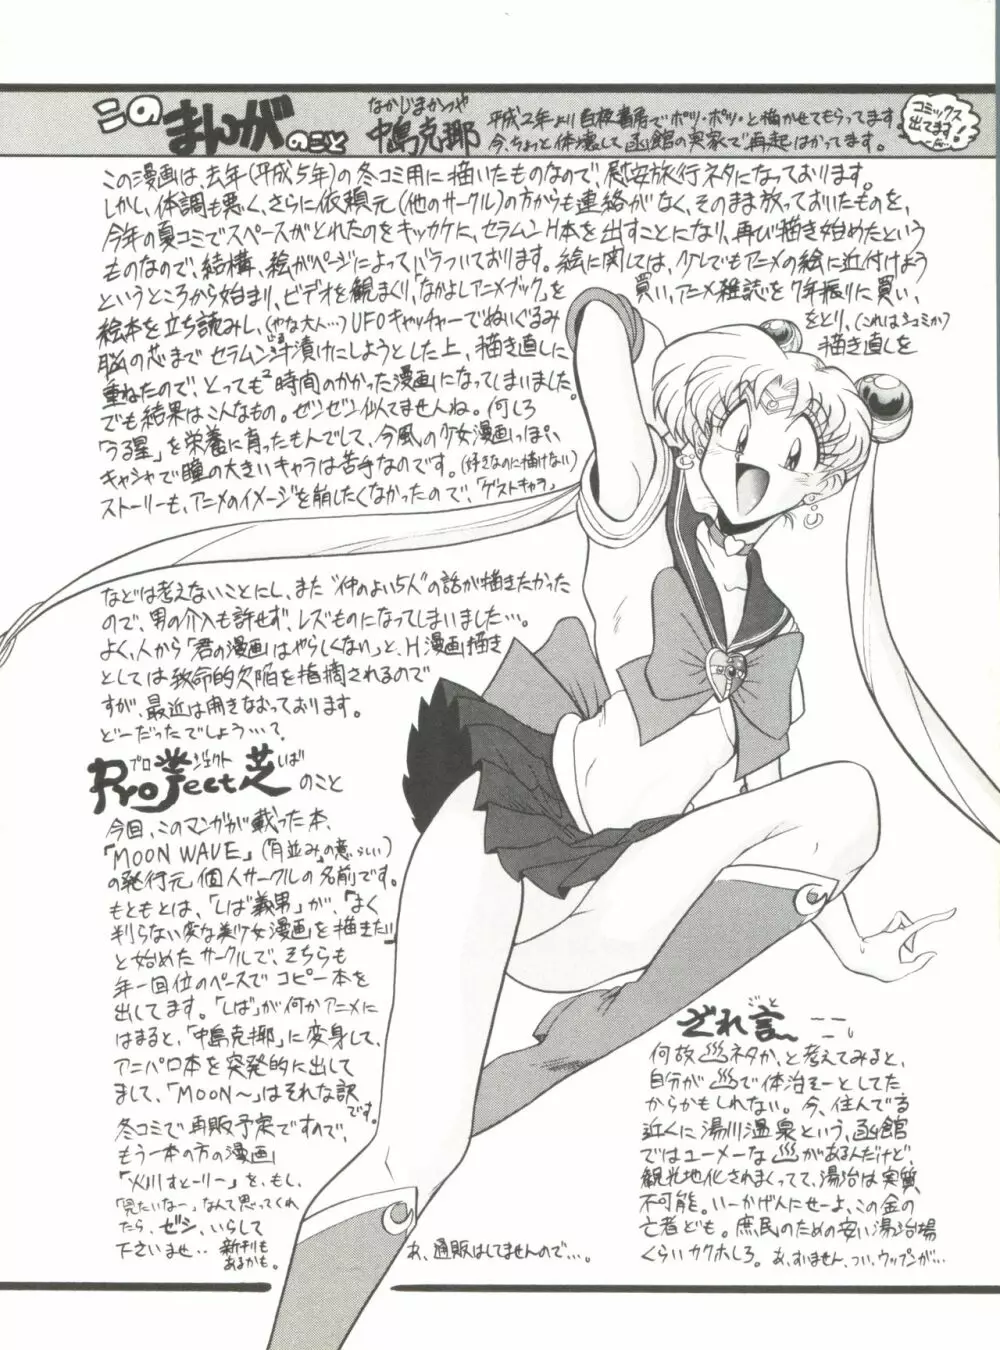 このまんがのこと
なかじまかつや
中島克耶
平成2年より白夜書房でポツ・ポツ・と描かせてもらってます
今、ちょっと体壊して函館の実家で再起はかってます。
コミックス
出てます!
この漫画は、去年(平成5年)の冬コミ用に描いたものなので、慰安旅行ネタになっております。
しかし、体調も悪く、さらに依頼元(他のサークル)の方からも連絡がなく、そのまま放っておいたものを、
今年の夏コミでスペースがとれたのをキッカケに、セラムンH本を出すことになり、再び描き始めたという
ものなので、結構、絵がページによってバラついております。絵に関しては、少しでもアニメの絵に近付けよう
というところから始まり、ビデオを観まくり、「なかよしアニメブック」を買い、アニメ雑誌を7年振りに買い、
絵本を立ち読みし、(やな大人…)UFOキャッチャーでぬいぐるみをとり、(これはシュミか)
脳の芯までセラムン汁漬けにしようとした上、描き直しに描き直しを
重ねたので、とっても²時間のかかった漫画になってしまいました。
でも結果はこんなもの。ゼンゼン似てませんね。何しろ
「うる星」を栄養に育ったもんでして、今風の少女漫画っぽい
キャシャで瞳の大きいキャラは苦手なのです。(好きなのに描けない)
ストーリーも、アニメのイメージを崩したくなかったので、「ゲストキャラ」
などは考えないことにし、また“仲のよい5人”の話が描きたかった
ので、男の介入も許せず、レズものになってしまいました…。
よく、人から「君の漫画はやらしくない」と、H漫画描き
としては致命的欠陥を指摘されるので
すが、最近は開きなおっております。
どーだったでしょう…?
プロジェクトしば
Project芝のこと
今回、このマンガが載った本、
「MOON WAVE」(「月並み」の意らしい)
の発行元、個人サークルの名前です。
もともとは、「しば義男」が、「まく
判らない変な美少女漫画を描きたい」
と始めたサークルで、そちらも
年一回位のペースでコピー本を
出してます。「しば」が何かアニメに
はまると、「中島克耶」に変身して、
アニパロ本を突発的に出して
まして、「MOON〜」はそれな訳
です。
冬コミで再販予定ですので、
もう一本の方の漫画
「火川すとーりー」を、もし、
「見たいなー」なんて思ってくれ
たら、ゼシ、いらして
下さいませ‥新刊も
あるかも。
あ、通販はしてませんので…。
ざれ言〜
ごと
何故♨ネタか、と考えてみると、
自分が♨で体治そーとしてた
からかもしれない。今、住んでる
近くに湯川温泉という、函館
ではユーメーな♨があるんだけど、
観光地化されまくってて、湯治は実質
不可能。いーかげんにせーよ、この金の
亡者ども。庶民のための安い湯治場
くらいカクホしろ。あ、すいません、つい、ウップンが…